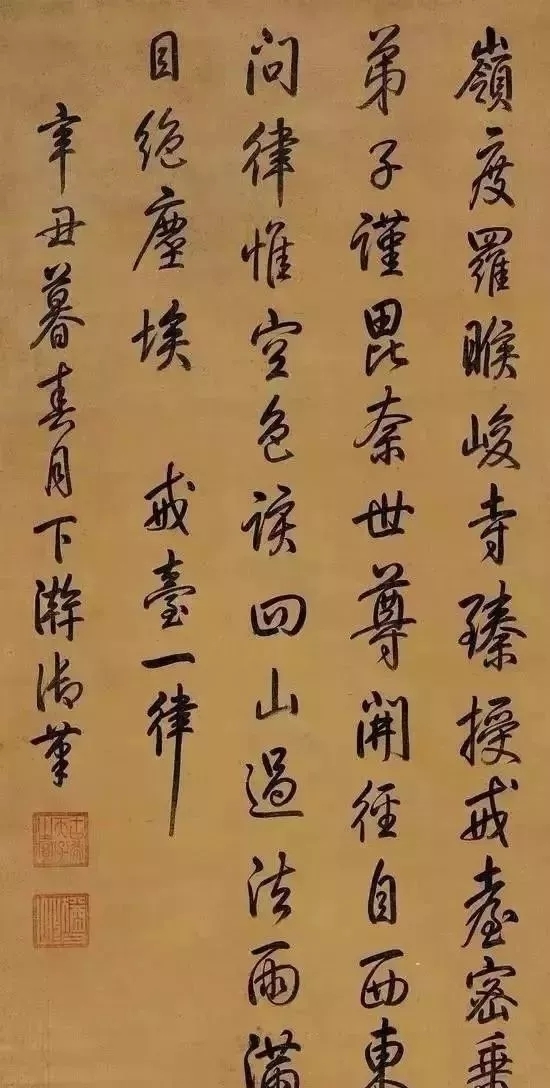 嶺度羅睺峻寺臻授戒臺密乗
弟子謹毘奈世尊開徑自西東
問律惟空色該回山過法雨滿
目絶塵埃　戒臺一律
辛丑暮春月下澣御筆